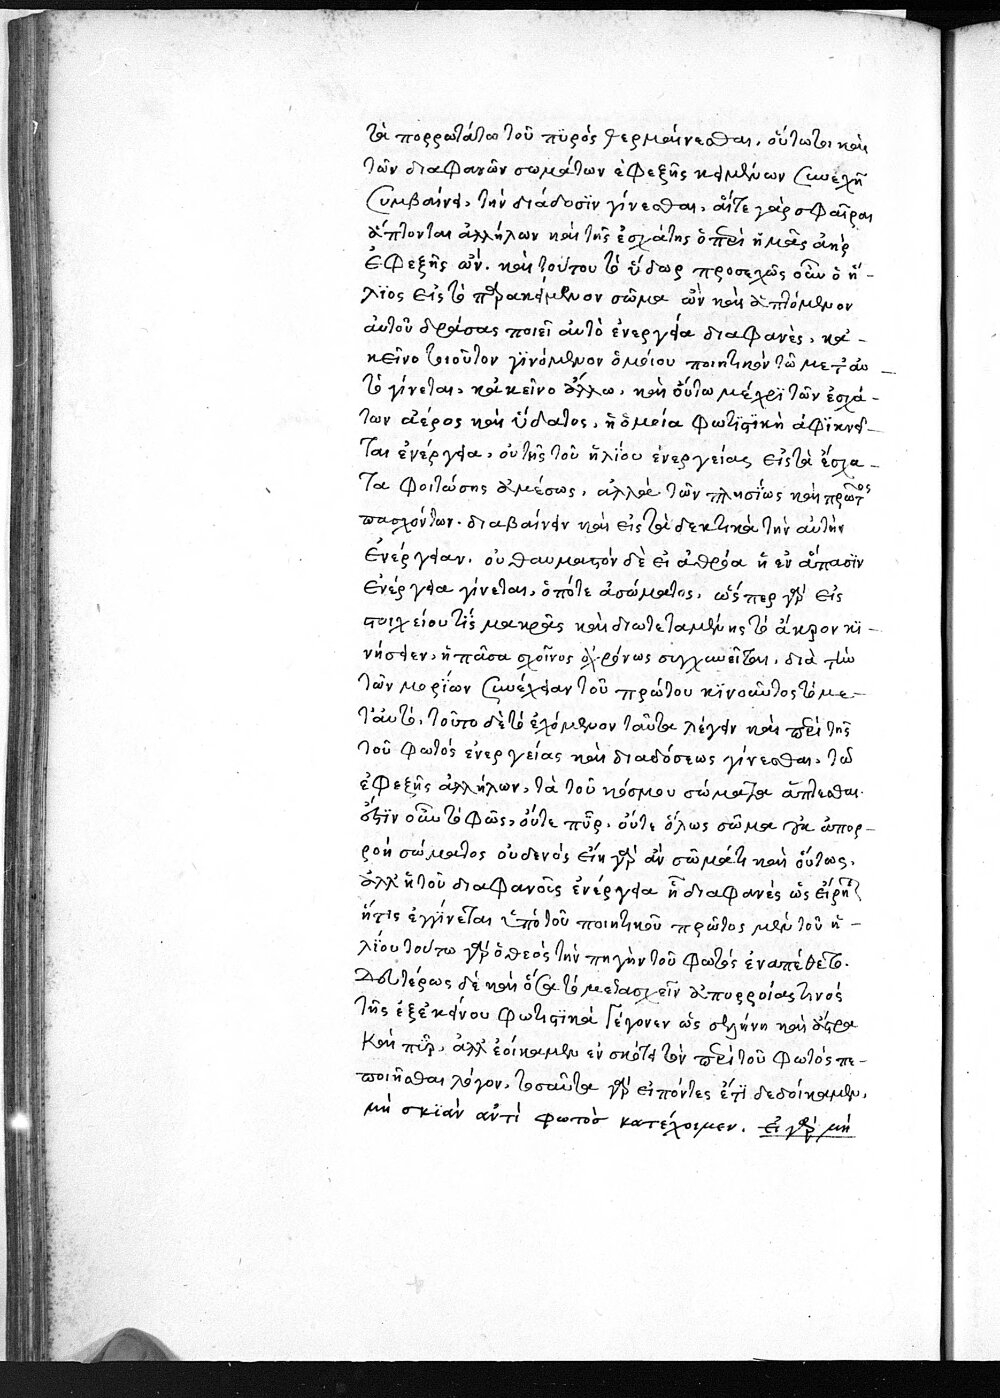 τὰ πορρωτάτω τοῦ πϋρός θερμαίνεσθαι, οὕτωσι καὶ
τῶν διαφανῶν σωμάτων ἐφεξῆς κειμένων συνεχῆ
συμβαίνει, τὴν διάδοσϊν γίνεσθαι, αἵτε γὰρ σφαῖραι
ἅπτονται ἀλλήλων καὶ τῆς ἐσχάτης ὁ περὶ ἡμᾶς ἀὴρ
ἐφεξῆς ὢν. καὶ τούτου τὸ ὕδωρ προσεχῶς οὖν ὁ ἥ-
λϊος εἰς τὸ παρακείμενον σῶμα ὢν καὶ ἁπτόμενον
αὐτοῦ δράσας ποιεῖ αὐτὸ ἐνεργεία διαφανὲς, κἀ-
κεῖνο τοιοῦτον γϊνόμενον ὁμοίου ποιητικὸν τῶ μετ' αὐ-
τὸ γίνεται, κἀκεῖνο ἄλλω, καὶ οὕτω μέχρϊ τῶν ἐσχά-
των ἀέρος καὶ ὕδατος, ἡ ὁμοία φωτϊστϊκὴ ἀφϊκνεῖ-
ται ἐνέργεια, οὐ τῆς τοῦ ἡλίου ἐνεργείας εἰς τὰ ἔσχα-
τα φοιτώσης ἀμέσως, ἀλλὰ τῶν πλησίως καὶ πρώτως
πασχόντων. διαβαίνειν καὶ εἰς τὰ δεκτικὰ τὴν αὐτὴν
ἐνέργειαν. οὐ θαυμαστόν δὲ εἰ ἀθρόα ἡ ἐν ἅπασϊν
ἐνέργεια γίνεται, ὁπότε ἀσώματος, ὥσπερ γὰρ εἰς
στοιχείου τῆς μακρᾶς καὶ διατεταμένης τὸ ἄκρον κϊ-
νήσειεν, ἡ πᾶσα σχοῖνος ἀχρόνως συγκινεῖται, διὰ τὴν
τῶν μορΐων συνέχειαν τοῦ πρώτου κϊνοῦντος τὸ με-
τ' αὐτὸ, τοῦτο δὲ τὸ ἐχόμενον ταῦτα λέγειν καὶ περὶ τῆς
τοῦ φωτός ἐνεργείας καὶ διαδόσεως γίνεσθαι, τῶ
ἐφεξῆς ἀλλήλων, τὰ τοῦ κόσμου σώματα ἅπτεσθαι.
ἔστϊν οὖν τὸ φῶς, οὔτε πῦρ, οὔτε ὅλως σῶμα οὐκ ἀπορ-
ροὴ σώματος οὐδενός εἴη γὰρ ἂν σῶμά τι καὶ οὕτως,
ἀλλ' ἡ τοῦ διαφανοῖς ἐνέργεια ἧ διαφανὲς ὡς εἴρηται
ἥτις ἐγγίνεται ὑπὸ τοῦ ποιητικοῦ πρώτως μὲν τοῦ ἡ-
λίου τούτω γὰρ ὁ θεός τὴν πηγὴν τοῦ φωτός ἐναπέθετο.
Δευτέρως δὲ καὶ ὅσα τὸ μετασχεῖν ἀπορροίας τινός
τῆς ἐξ ἐκείνου φωτιστϊκὰ γέγονεν ὡς σελήνη καὶ ἄστρα
καὶ πῦρ, ἀλλ' ἐοίκαμεν ἐν σκότει τὸν περὶ τοῦ φωτός πε-
ποιῆσθαι λόγον, τοσαῦτα γὰρ εἰπόντες ἔτϊ δεδοίκαμεν,
μὴ σκϊὰν ἀντὶ φωτὸς κατέχοιμεν. εἰ γὰρ μὴ